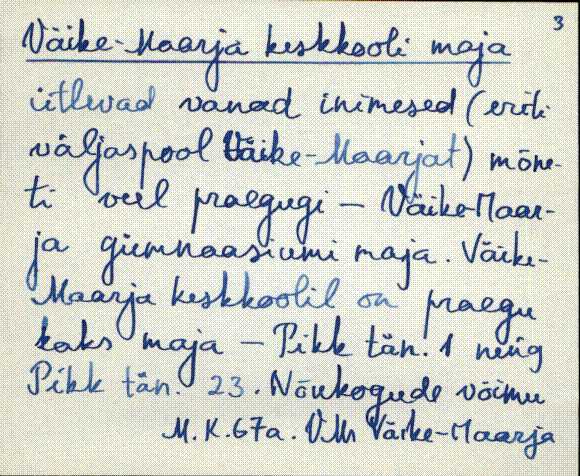 3
Väike-Maarja keskkooli maja
ütlevad vanad inimesed (eriti
väljaspool Väike-Maarjat) mõne-
ti veel praegugi - Väike-Maar-
ja gümnaasiumi maja. Väike-
Maarja keskkoolil on praegu
kaks maja - Pikk tän. 1 ning
Pikk tän. 23. Nõukogude võimu
M.K.67a. VMr Väike-Maarja